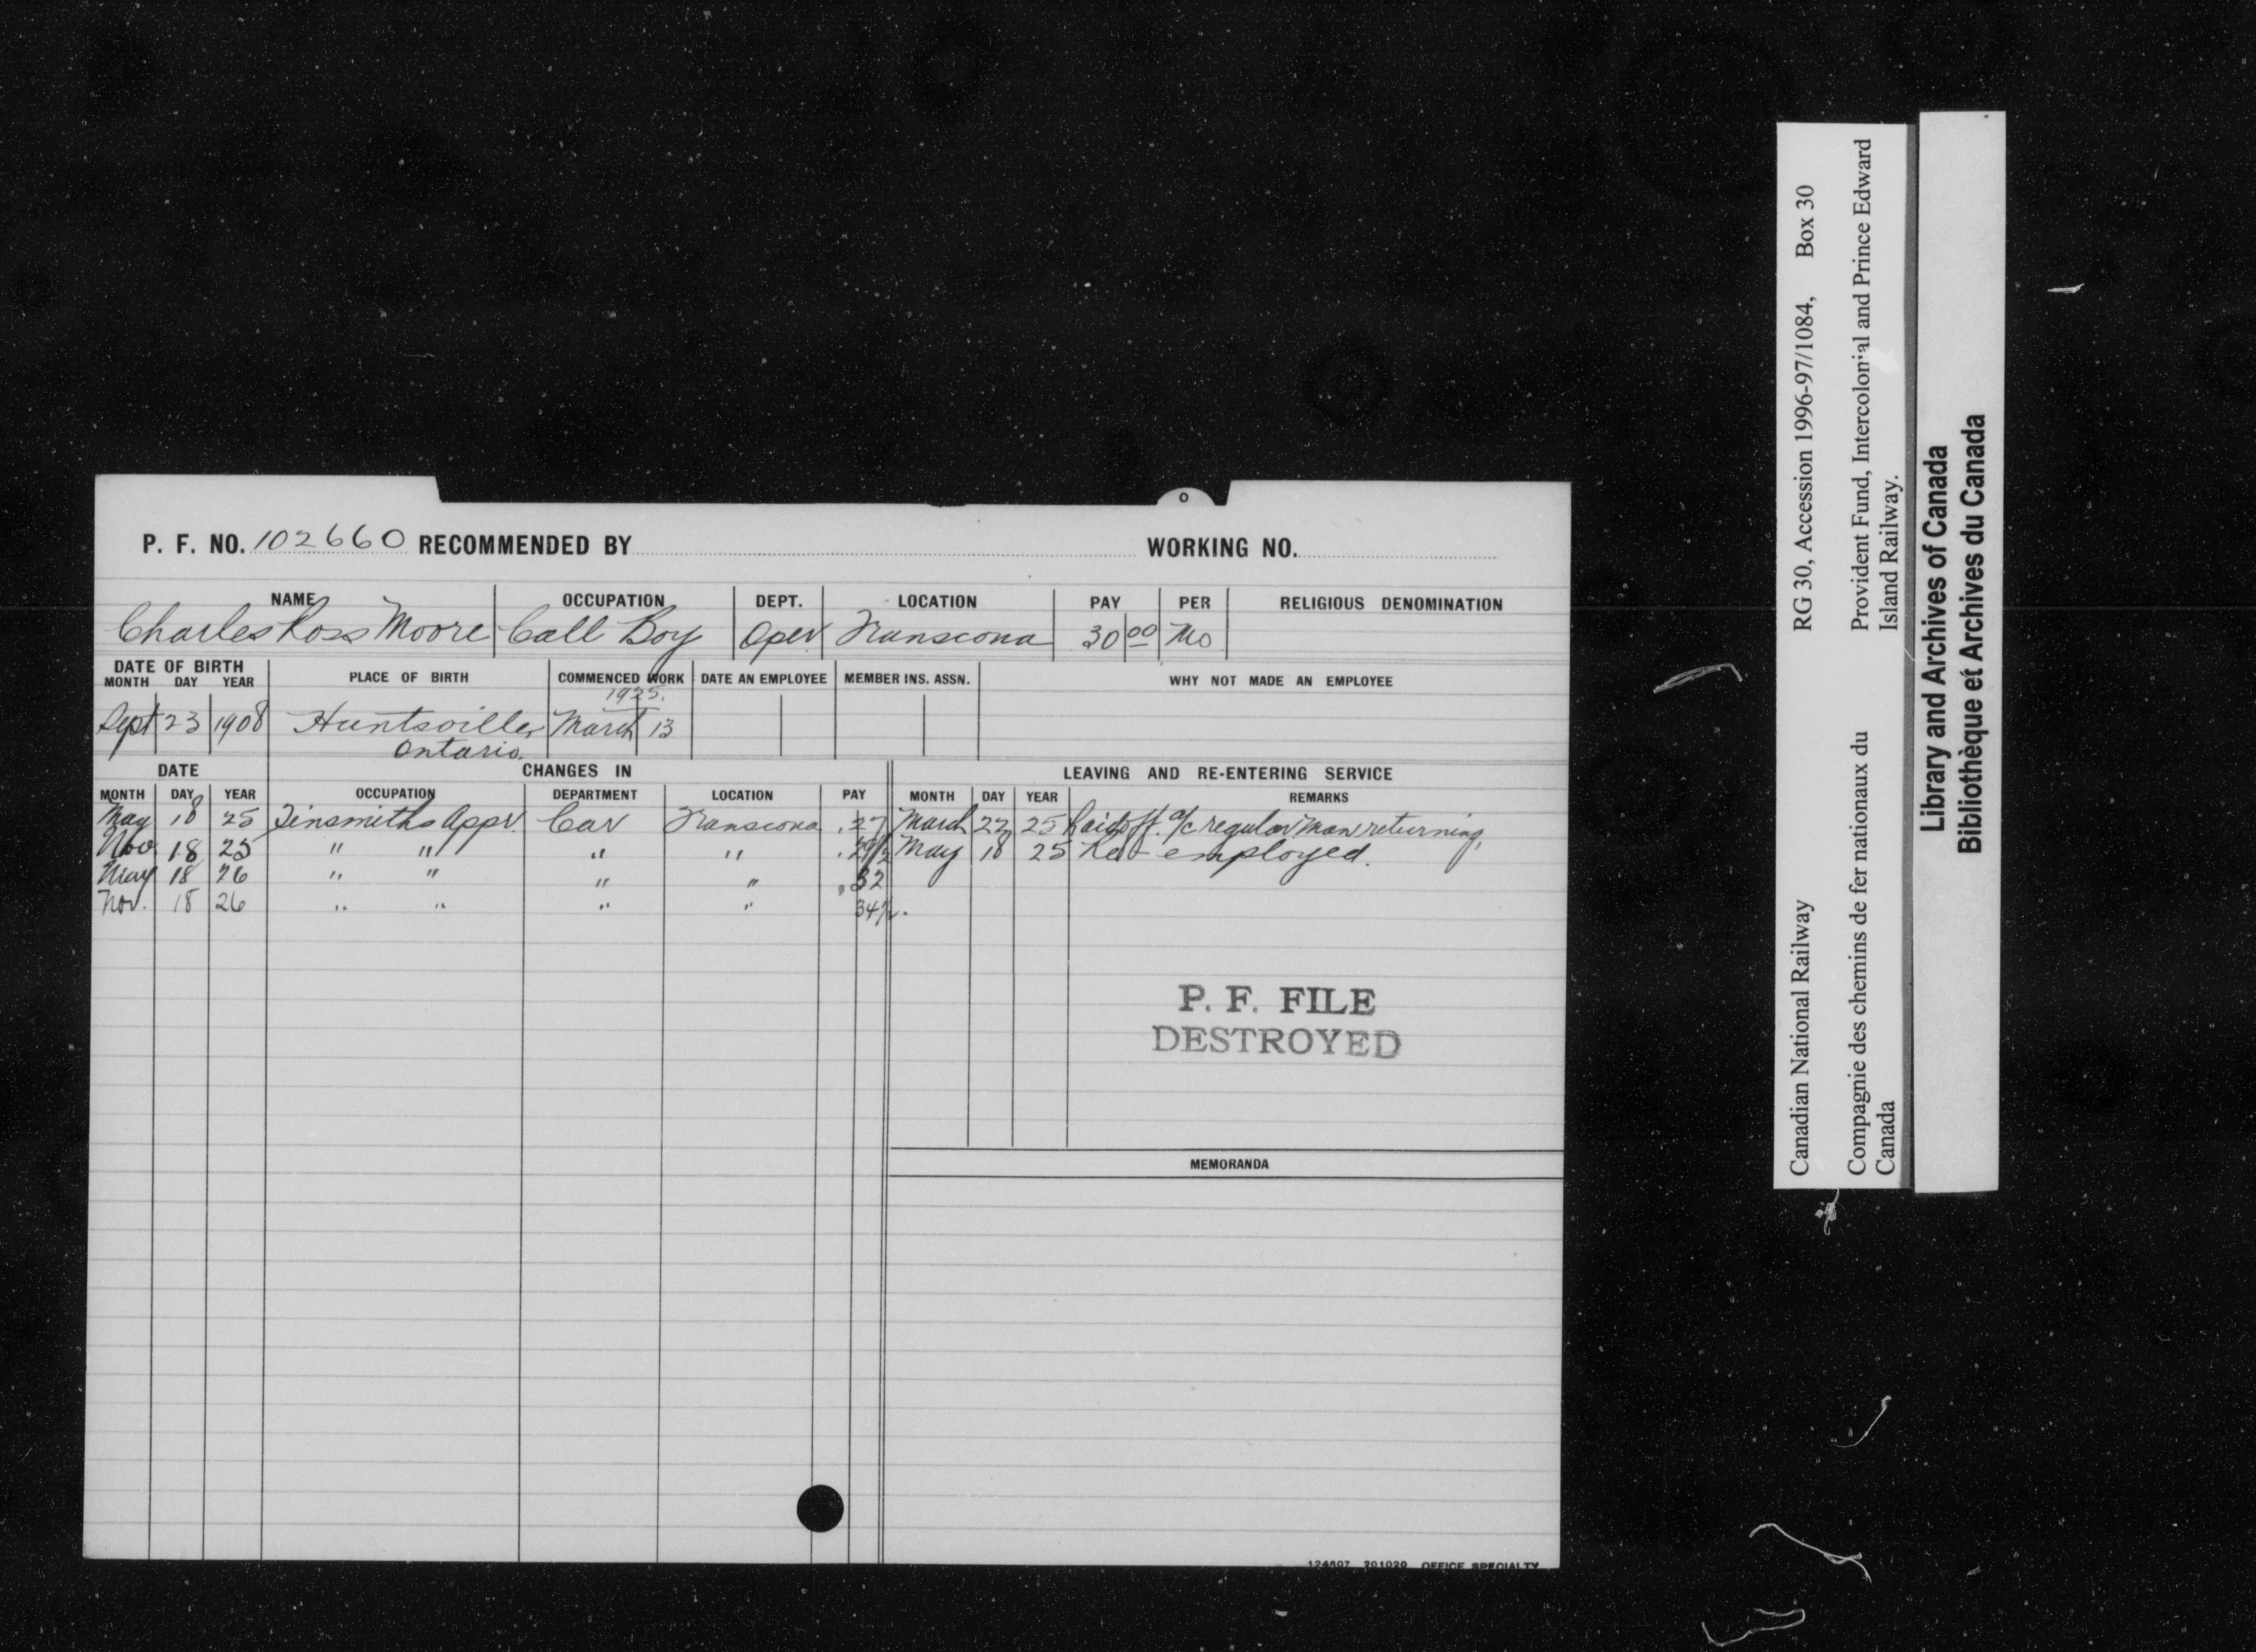 P. F. NO. 102660 RECOMMENDED BY WORKING NO.
NAME OCCUPATION DEPT. LOCATION PAY PER RELIGIOUS DENOMINATION
Charles Ross Moore Call Boy Oper Transcona 30 00 Mo
DATE OF BIRTH
MONTH DAY YEAR PLACE OF BIRTH COMMENCED WORK DATE AN EMPLOYEE MEMBER INS. ASSN. WHY NOT MADE AN EMPLOYEE
1925.
Sept 23 1908 Huntsville, March 13
Ontario.
DATE CHANGES IN LEAVING AND RE-ENTERING SERVICE
MONTH DAY YEAR OCCUPATION DEPARTMENT LOCATION PAY MONTH DAY YEAR REMARKS
May 18 25 Tinsmiths Appr. Car Transcona .27 March 27 25 Laid off. a/c regular man returning,
Nov 18 25 " " " " .29½ May 18 25 Re-employed.
May 18 26 " " " " .32
Nov. 18 26 " " " " 34½.
P. F. FILE
DESTROYED
MEMORANDA
124807 201020 OFFICE SPECIALTY
Canadian National Railway RG 30, Accession 1996-97/1084, Box 30
Compagnie des chemins de fer nationaux du Provident Fund, Intercolonial and Prince Edward
Canada Island Railway.
Library and Archives of Canada
Bibliothèque et Archives du Canada